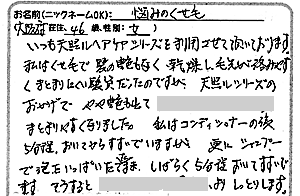 お名前(ニックネームOK): 悩みのくせ毛
大阪府在住、46歳、性別: 女
いつも天然ルヘアケアシリーズを利用させて頂いております。
私はくせ毛で 髪の艶もなく 乾燥し毛先が絡みやす
くまとまりにくい髪質だったのですが、天然ルシリーズの
おかげで やや艶も出て
まとまりやすくなりました。 私はコンディショナーの後
5分位、おいてからすすいでいますが、 更に シャンプー
で泡をいっぱいたてたまま、しばらく 5分位 おいてすすいで
ます そうすると おしっとりします。